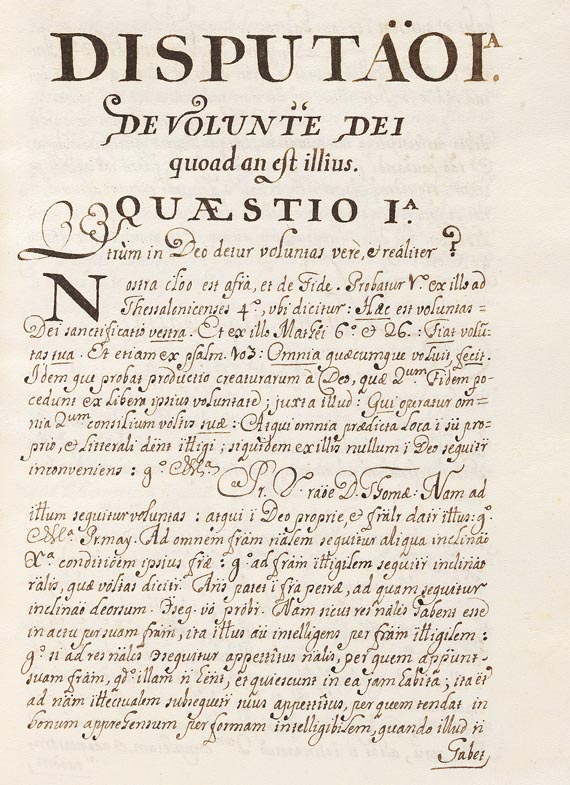 DISPUTÃOI.ᴬ
DE VOLUNTE DEI
quoad an est illius.
QUÆSTIO I.ᴬ
Utrùm in Deo detur voluntas verè, et reáliter?
Nostra clõo est afrã, et de Fide. Probatur V. ex illo ad
Thessalonicenses 4º, vbi dicitur: Hæc est voluntas =
Dei sanctificatio vestra. Et ex illo Matthei 6º et 26. Fiat volũ-
tas tua. Et etiam ex psalm. 103: Omnia quæcumque voluit, fecit.
Idem que probat productio creaturarum à Deo, quæ 2ᵘᵐ Fidem po-
cedunt ex libera ipsius voluntate; juxta illud: Qui operatur om-
nia 2ᵘᵐ consilium võltis suæ: Atqui omnia prædicta loca i sũ pro-
prio, et litterali dent itligi; siquidem ex illis nullum i Deo seqüitr
inconveniens: gº
Pr. V. raõe D. Thomæ. Nam ad
illum sequitur voluntas: atqui i Deo proprie, et frãlr datr itlus: gº.
Pr. may. Ad omnem frãm nãlem sequitur aliqua inclinão
Xᵃ conditiõem ipsius frãe: gº ad frãm itligilem sequitr inclinão
rãlis, quæ võltas dicitr. Ans patet i frã petræ, ad quam sequitur
inclinão deorsum. Dseq. vò probr. Nam sicut res nãles habent esse
in actu per suam frãm, ita itlus aũ intelligens per frãm itligilem:
gº si ad res nãles dsequitur appetitus nãlis, per quem appũnt
suam frãm, qdº illam ñ hẽnt, et quiescunt in ea jam habita; ita et
ad nãm itlectualem subsequitr súus appetitus, per quem tendat in
bonum apprehensum per formam intelligibilem, quando illud ñ
habet,